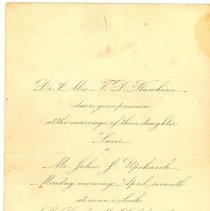 Dr & Mrs T. D. Hawkins
desire your presence
at the marriage of their daughter
Susie
to
Mr. John J. Upchurch
Monday morning, April seventh
at seven o'clock